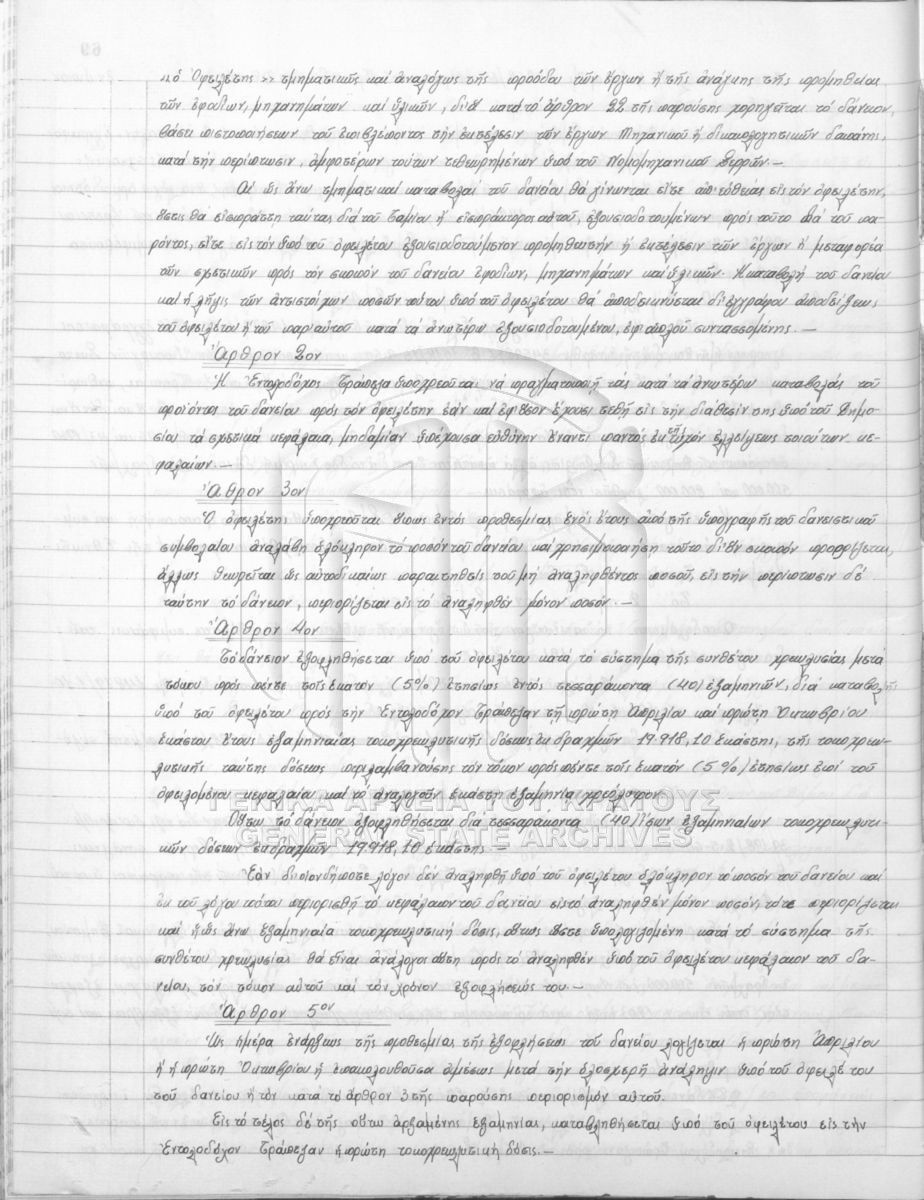 «ὁ Ὀφειλέτης» τμηματικῶς καὶ ἀναλόγως τῆς προόδου τῶν ἔργων ἢ τῆς ἀνάγκης τῆς προμηθείας
τῶν ἐφοδίων, μηχανημάτων καὶ ὑλικῶν, δι' ἃ κατὰ τὸ ἄρθρον 22 τῆς παρούσης χορηγεῖται τὸ δάνειον,
βάσει πιστοποιήσεων τοῦ ἐπιβλέποντος τὴν ἐκτέλεσιν τῶν ἔργων Μηχανικοῦ ἢ δικαιολογητικῶν δαπάνης,
κατὰ τὴν περίπτωσιν, ἀμφοτέρων τούτων τεθεωρημένων ὑπὸ τοῦ Νομομηχανικοῦ Σερρῶν.—
Αἱ ὡς ἄνω τμηματικαὶ καταβολαὶ τοῦ δανείου θὰ γίνωνται εἴτε ἀπ' εὐθείας εἰς τὸν ὀφειλέτην,
ὅστις θὰ εἰσπράττῃ ταύτας διὰ τοῦ Ταμίου ἢ εἰσπράκτορος αὐτοῦ, ἐξουσιοδοτουμένων πρὸς τοῦτο διὰ τοῦ πα-
ρόντος, εἴτε εἰς τὸν ὑπὸ τοῦ ὀφειλέτου ἐξουσιοδοτούμενον προμηθευτήν ἢ ἐκτέλεσιν τῶν ἔργων ἢ μεταφορέα
τῶν σχετικῶν πρὸς τὸν σκοποὺν τοῦ δανείου ἐφοδίων, μηχανημάτων καὶ ὑλικῶν. Ἡ καταβολὴ τοῦ δανείου
καὶ ἡ λῆψις τῶν ἀντιστοίχων ποσῶν τούτου ὑπὸ τοῦ ὀφειλέτου θὰ ἀποδεικνύεται δι' ἐγγράφου ἀποδείξεως,
τοῦ ὀφειλέτου ἢ τοῦ παρ' αὐτοῦ κατὰ τὰ ἀνωτέρω ἐξουσιοδοτουμένου, ἐφ' ἁπλοῦ συντασσομένης.—
Ἄρθρον 2ον
Ἡ Ἐντολοδόχος Τράπεζα ὑποχρεοῦται νὰ πραγματοποιῇ τὰς κατὰ τὰ ἀνωτέρω καταβολὰς τοῦ
προϊόντος τοῦ δανείου πρὸς τὸν ὀφειλέτην ἐὰν καὶ ἐφ' ὅσον ἔχουσι τεθῇ εἰς τὴν διάθεσίν της ὑπὸ τοῦ Δημο-
σίου τὰ σχετικὰ κεφάλαια, μηδεμίαν ὑπέχουσα εὐθύνην ἔναντι παντὸς ἐκ τῆς τυχὸν ἐλλείψεως τοιούτων κε-
φαλαίων.—
Ἄθρον 3ον
Ὁ ὀφειλέτης ὑποχρεοῦται ὅπως ἐντὸς προθεσμίας ἑνὸς ἔτους ἀπὸ τῆς ὑπογραφῆς τοῦ δανειστικοῦ
συμβολαίου ἀναλάβῃ ὁλόκληρον τὸ ποσὸν τοῦ δανείου καὶ χρησιμοποιήσῃ τοῦτο δι' ὃν σκοπὸν προορίζεται,
ἄλλως θεωρεῖται ὡς αὐτοδικαίως παραιτηθεὶς τοῦ μὴ ἀναληφθέντος ποσοῦ, εἰς τὴν περίπτωσιν δὲ
ταύτην τὸ δάνειον, περιορίζεται εἰς τὸ ἀναληφθὲν μόνον ποσόν.—
Ἄρθρον 4ον
Τὸ δάνειον ἐξοφληθήσεται ὑπὸ τοῦ ὀφειλέτου κατὰ τὸ σύστημα τῆς συνθέτου χρεωλυσίας μετὰ
τόκου πρὸς πέντε τοῖς ἑκατὸν (5%) ἐτησίως ἐντὸς τεσσαράκοντα (40) ἑξαμηνιῶν, διὰ καταβολῆς
ὑπὸ τοῦ ὀφειλέτου πρὸς τὴν Ἐντολοδόχον Τράπεζαν τῇ πρώτῃ Ἀπριλίου καὶ πρώτῃ Ὀκτωβρίου
ἑκάστου ἔτους ἑξαμηνιαίας τοκοχρεωλυτικῆς δόσεως ἐκ δραχμῶν 19.918,10 ἑκάστης, τῆς τοκοχρεω-
λυτικῆς ταύτης δόσεως περιλαμβανούσης τὸν τόκον πρὸς πέντε τοῖς ἑκατὸν (5%) ἐτησίως ἐπὶ τοῦ
ὀφειλομένου κεφαλαίου, καὶ τὸ ἀναλογοῦν ἑκάστῃ ἑξαμηνίᾳ χρεόλυτρον.
Οὕτω τὸ δάνειον ἐξοφληθήσεται διὰ τεσσαράκοντα (40) ἴσων ἑξαμηνιαίων τοκοχρεωλυτι-
κῶν δόσεων ἐκ δραχμῶν 19.918,10 ἑκάστης.
Ἐὰν δι' οἱονδήποτε λόγον δὲν ἀναληφθῇ ὑπὸ τοῦ ὀφειλέτου ὁλόκληρον τὸ ποσὸν τοῦ δανείου καὶ
ἐκ τοῦ λόγου τούτου περιορισθῇ τὸ κεφάλαιον τοῦ δανείου εἰς τὸ ἀναληφθὲν μόνον ποσόν, τότε περιορίζεται
καὶ ἡ ὡς ἄνω ἑξαμηνιαία τοκοχρεωλυτικὴ δόσις, οὕτως ὥστε ὑπολογιζομένη κατὰ τὸ σύστημα τῆς
συνθέτου χρεωλυσίας θὰ εἶναι ἀνάλογος αὕτη πρὸς τὸ ἀναληφθὲν ὑπὸ τοῦ ὀφειλέτου κεφάλαιον τοῦ δα-
νείου, τὸν τόκον αὐτοῦ καὶ τὸν χρόνον ἐξοφλήσεώς του.—
Ἄρθρον 5ον
Ὡς ἡμέρα ἐνάρξεως τῆς προθεσμίας τῆς ἐξοφλήσεως τοῦ δανείου λογίζεται ἡ πρώτη Ἀπριλίου
ἢ ἡ πρώτη Ὀκτωβρίου ἡ ἐπακολουθοῦσα ἀμέσως μετὰ τὴν ὁλοσχερῆ ἀνάληψιν ὑπὸ τοῦ ὀφειλέτου
τοῦ δανείου ἢ τὸν κατὰ τὸ ἄρθρον 3 τῆς παρούσης περιορισμὸν αὐτοῦ.
Εἰς τὸ τέλος δὲ τῆς οὕτω ἀρξαμένης ἑξαμηνίας, καταβληθήσεται ὑπὸ τοῦ ὀφειλέτου εἰς τὴν
Ἐντολοδόχον Τράπεζαν ἡ πρώτη τοκοχρεωλυτικὴ δόσις.—
ΓΕΝΙΚΑ ΑΡΧΕΙΑ ΤΟΥ ΚΡΑΤΟΥΣ
GENERAL STATE ARCHIVES